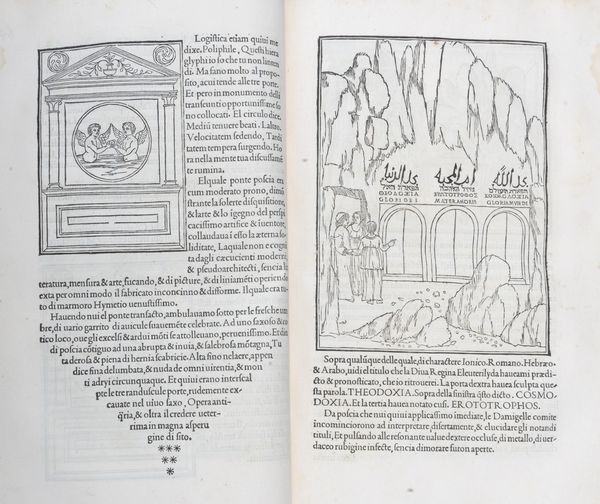 Logistica etiam quiui me
dixe. Poliphile, Questi hiera
glyphi io so che tu non li inten
di. Ma sano molto al propo-
sito, acui tende alle tre porte.
Et pero in monumento della
transeunti opportunissime so
no collocati. El circulo dice.
Mediũ tenuere beati. Laltro.
Velocitatem sedendo, Tardi
tatem tempera surgendo. Ho
ra nella mente tua discussamẽ
te rumina.
Elquale ponte poscia era
cum moderato prono, dimõ
strante la solerte disquisitione,
& larte & lo ĩgegno del perspi
cacissimo artifice & iuentore,
collaudaua ĩ esso la æterna so-
liditate, Laquale non e cogni-
ta dagli cæcucienti moderni,
& pseudoarchitecti, sencia li-
teratura, mensura & arte, fucando, & di picture, & di liniamẽti opriendo
exta per omni modo il fabricato inconcinno & difforme. Il quale era tu
to di marmoro Hymetio uenustissimo.
Hauendo nui el ponte transacto, ambulauamo sotto per le fresche um
bre, di uario garrito di auicule suauemẽte celebrate. Ad uno saxoso &
ctico loco, oue gli excelsi & ardui mõti se attolleuano, peruenissimo. Et dĩn
di poscia cõtiguo ad una abrupta & inuia, & salebrosa mõtagna, Tu
ta derosa & piena di hernis scabricie. Alta fino nel aere, appen
dice fina delumbata, & nuda de omni uirentia, & mon
ti adryi circunquaque. Et quiui erano interscal
pte le tre randuscule porte, rudemente ex-
cauate nel uiuo saxo. Opera anti-
q̃ria, & oltra il credere ueter-
rima in magna asperu
gine di sito.
يد الدنيا
יד אלהים
ΘΕΟΔΟΞΙΑ
GLORI DEI
ΕΡΩΤΟΤΡΟΦΟΣ
MATER AMORIS
يد الله
ΚΟΣΜΟΔΟΞΙΑ
GLORIA MVNDI
Sopra qualuque delle quale, di charactere Ionico. Romano. Hebræo.
& Arabo, uidi el titulo che la Diua Regina Eleuterilyda haueami prædi-
cto & pronosticato, che io ritrouerei. La porta dextra hauea sculpta que
sta parola. THEODOXIA. Sopra della sinistra q̃sto dicto. COSMO-
DOXIA. Et la tertia hauea notato cusi. EROTOTROPHOS.
Da poscia che nui quiui applicassimo imediate, le Damigelle comite
incominciorono ad interpretare, disertamente, & elucidare gli notandi
tituli, Et pulsando alle resonante ualue dextere occluse, di metallo, di uer-
dacco rubigine infecte, sencia dimorare furon aperte.